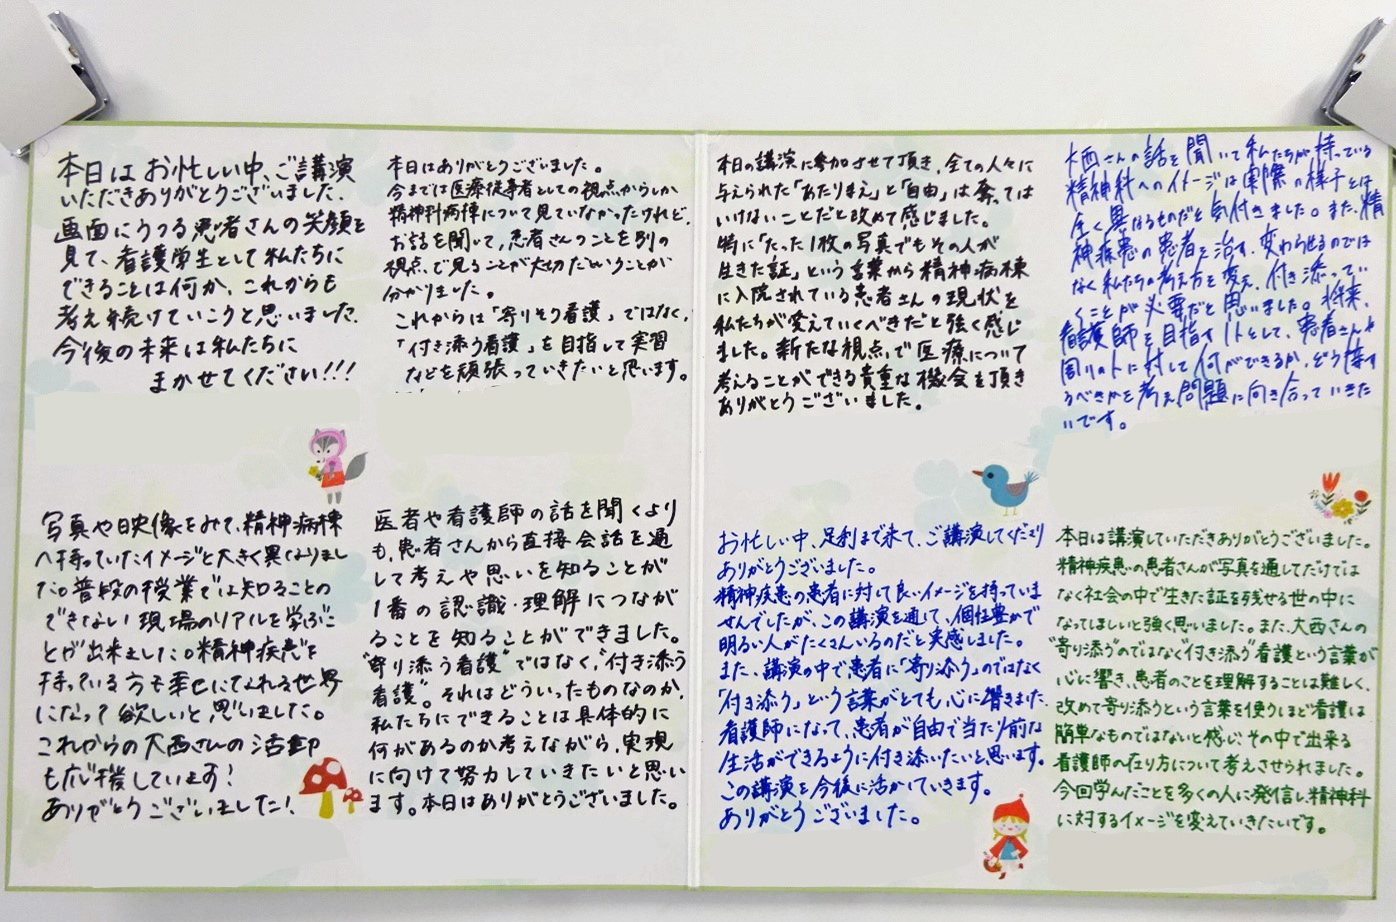 本日は お忙しい中、ご講演
いただきありがとうございました。
画面にうつる患者さんの笑顔を
見て、看護学生として私たちに
できることは何か、これからも
考え続けていこうと思いました。
今後の未来は私たちに
まかせてください!!!
本日はありがとうございました。
今までは医療従事者としての視点からしか
精神科病棟について見ていなかったけれど、
お話を聞いて、患者さんのことを別の
視点で見ることが大切だということが
分かりました。
これからは「寄りそう看護」ではなく、
「付き添う看護」を目指して実習
などを頑張っていきたいと思います。
本日の講演に参加させて頂き、全ての人々に
与えられた「あたりまえ」と「自由」は奪っては
いけないことだと改めて感じました。
特に「たった1枚の写真でもその人が
生きた証」という言葉から精神病棟
に入院されている患者さんの現状を
私たちが変えていくべきだと強く感じ
ました。新たな視点で医療について
考えることができる貴重な機会を頂き
ありがとうございました。
大西さんの話を聞いて私たちが持っている
精神科へのイメージは実際の様子とは
全く異なるものだと気付きました。また、精
神疾患の患者を治す、変わらせるのでは
なく私たちの考え方を変え、付き添ってい
くことが必要だと思いました。将来、
看護師を目指す1人として、患者さんや
周りの人に対して何ができるか、どう接す
るべきかを考え問題に向き合っていきた
いです。
写真や映像をみて、精神病棟
へ持っていたイメージと大きく異なりまし
た。普段の授業では知ることの
できない現場のリアルを学ぶこ
とが出来ました。精神疾患を
持っている方も幸せになれる世界
になって欲しいと思いました。
これからの大西さんの活動
も応援しています!
ありがとうございました!
医者や看護師の話を聞くより
も、患者さんから直接会話を通
して考えや思いを知ることが
1番の認識・理解につなが
ることを知ることができました。
"寄り添う看護"ではなく、"付き添う
看護"。それはどういったものなのか、
私たちにできることは具体的に
何があるのか考えながら、実現
に向けて努力していきたいと思い
ます。本日はありがとうございました。
お忙しい中、足利まで来て、ご講演してくださり
ありがとうございました。
精神疾患の患者に対して良いイメージを持っていま
せんでしたが、この講演を通して、個性豊かで
明るい人がたくさんいるのだと実感しました。
また、講演の中で患者に「寄り添う」のではなく
「付き添う」という言葉がとても心に響きました。
看護師になって、患者が自由で当たり前な
生活ができるように付き添いたいと思います。
この講演を今後に活かしていきます。
ありがとうございました。
本日は講演していただきありがとうございました。
精神疾患の患者さんが写真を通してだけでは
なく社会の中で生きた証を残せる世の中に
なってほしいと強く思いました。また、大西さんの
"寄り添う"のではなく"付き添う"看護という言葉が
心に響き、患者のことを理解することは難しく、
改めて寄り添うという言葉を使うほど看護は
簡単なものではないと感じ、その中で出来る
看護師の在り方について考えさせられました。
今回学んだことを多くの人に発信し、精神科
に対するイメージを変えていきたいです。